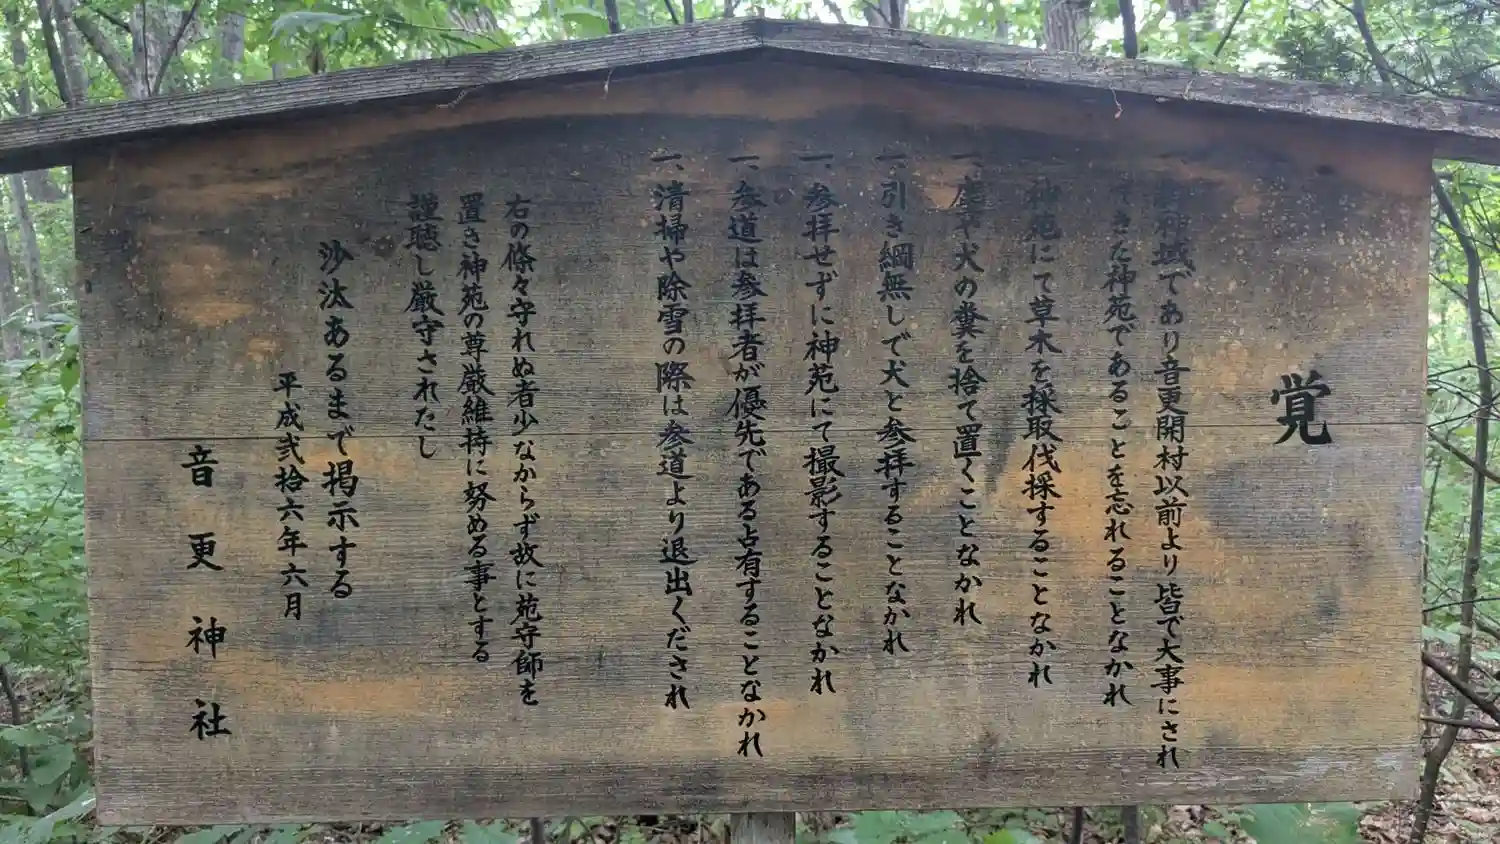 覚
神域であり音更開村以前より皆で大事にされ
てきた神苑であることを忘れることなかれ
神苑にて草木を採取伐採することなかれ
一、塵や犬の糞を捨て置くことなかれ
一、引き綱無しで犬と参拝することなかれ
一、参拝せずに神苑にて撮影することなかれ
一、参道は参拝者が優先である占有することなかれ
一、清掃や除雪の際は参道より退出くだされ
右の條々守れぬ者少なからず故に苑守師を
置き神苑の尊厳維持に努める事とする
謹聴し厳守されたし
沙汰あるまで掲示する
平成弐拾六年六月
音更神社